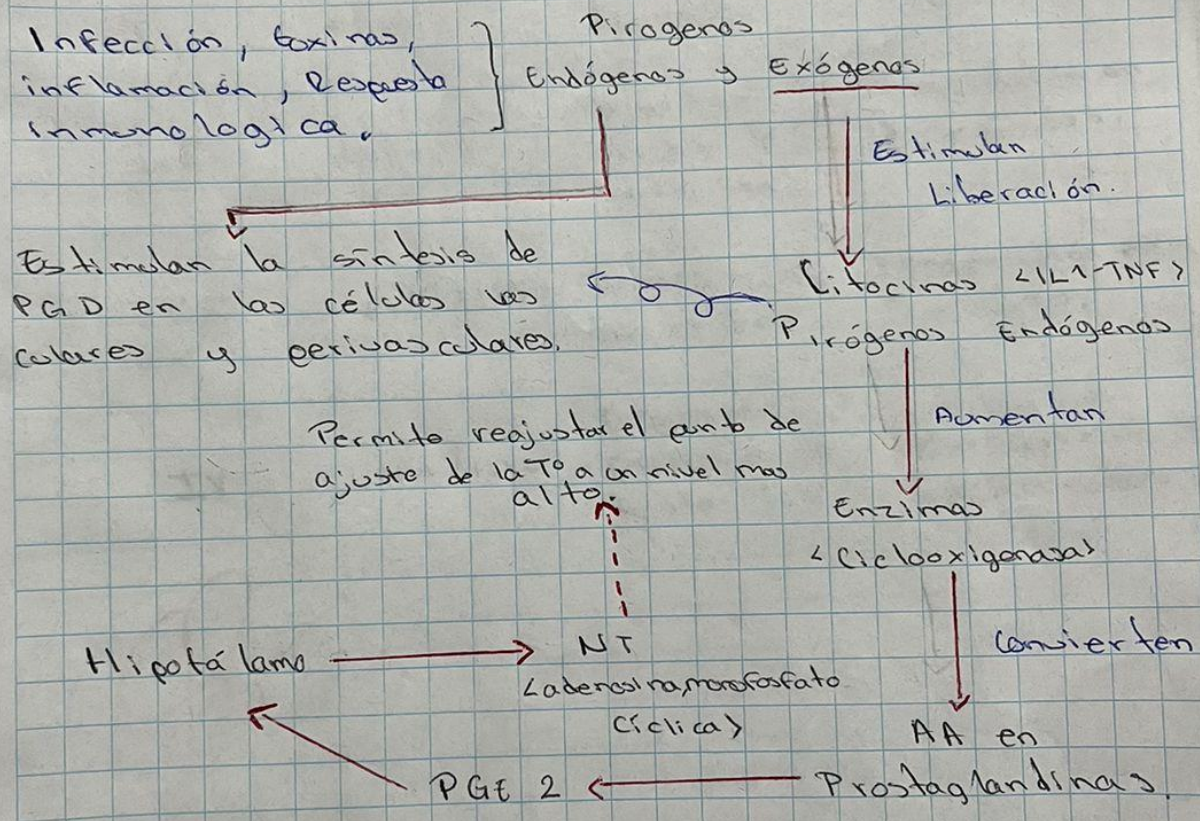 Infección, toxinas,
inflamación, Respuesta
inmunologica.
Pirogenos
Endógenos y Exógenos
Estimulan
Liberación.
Estimulan la síntesis de
PGD en las células vas
culares y perivasculares.
Citocinas <IL1-TNF>
Pirógenos Endógenos
Aumentan
Permite reajustar el punto de
ajuste de la Tº a un nivel mas
alto.
Enzimas
<Ciclooxigenasa>
Convierten
Hipotálamo
NT
<adenosina,monofosfato
Cíclica>
AA en
Prostaglandinas.
PGE 2